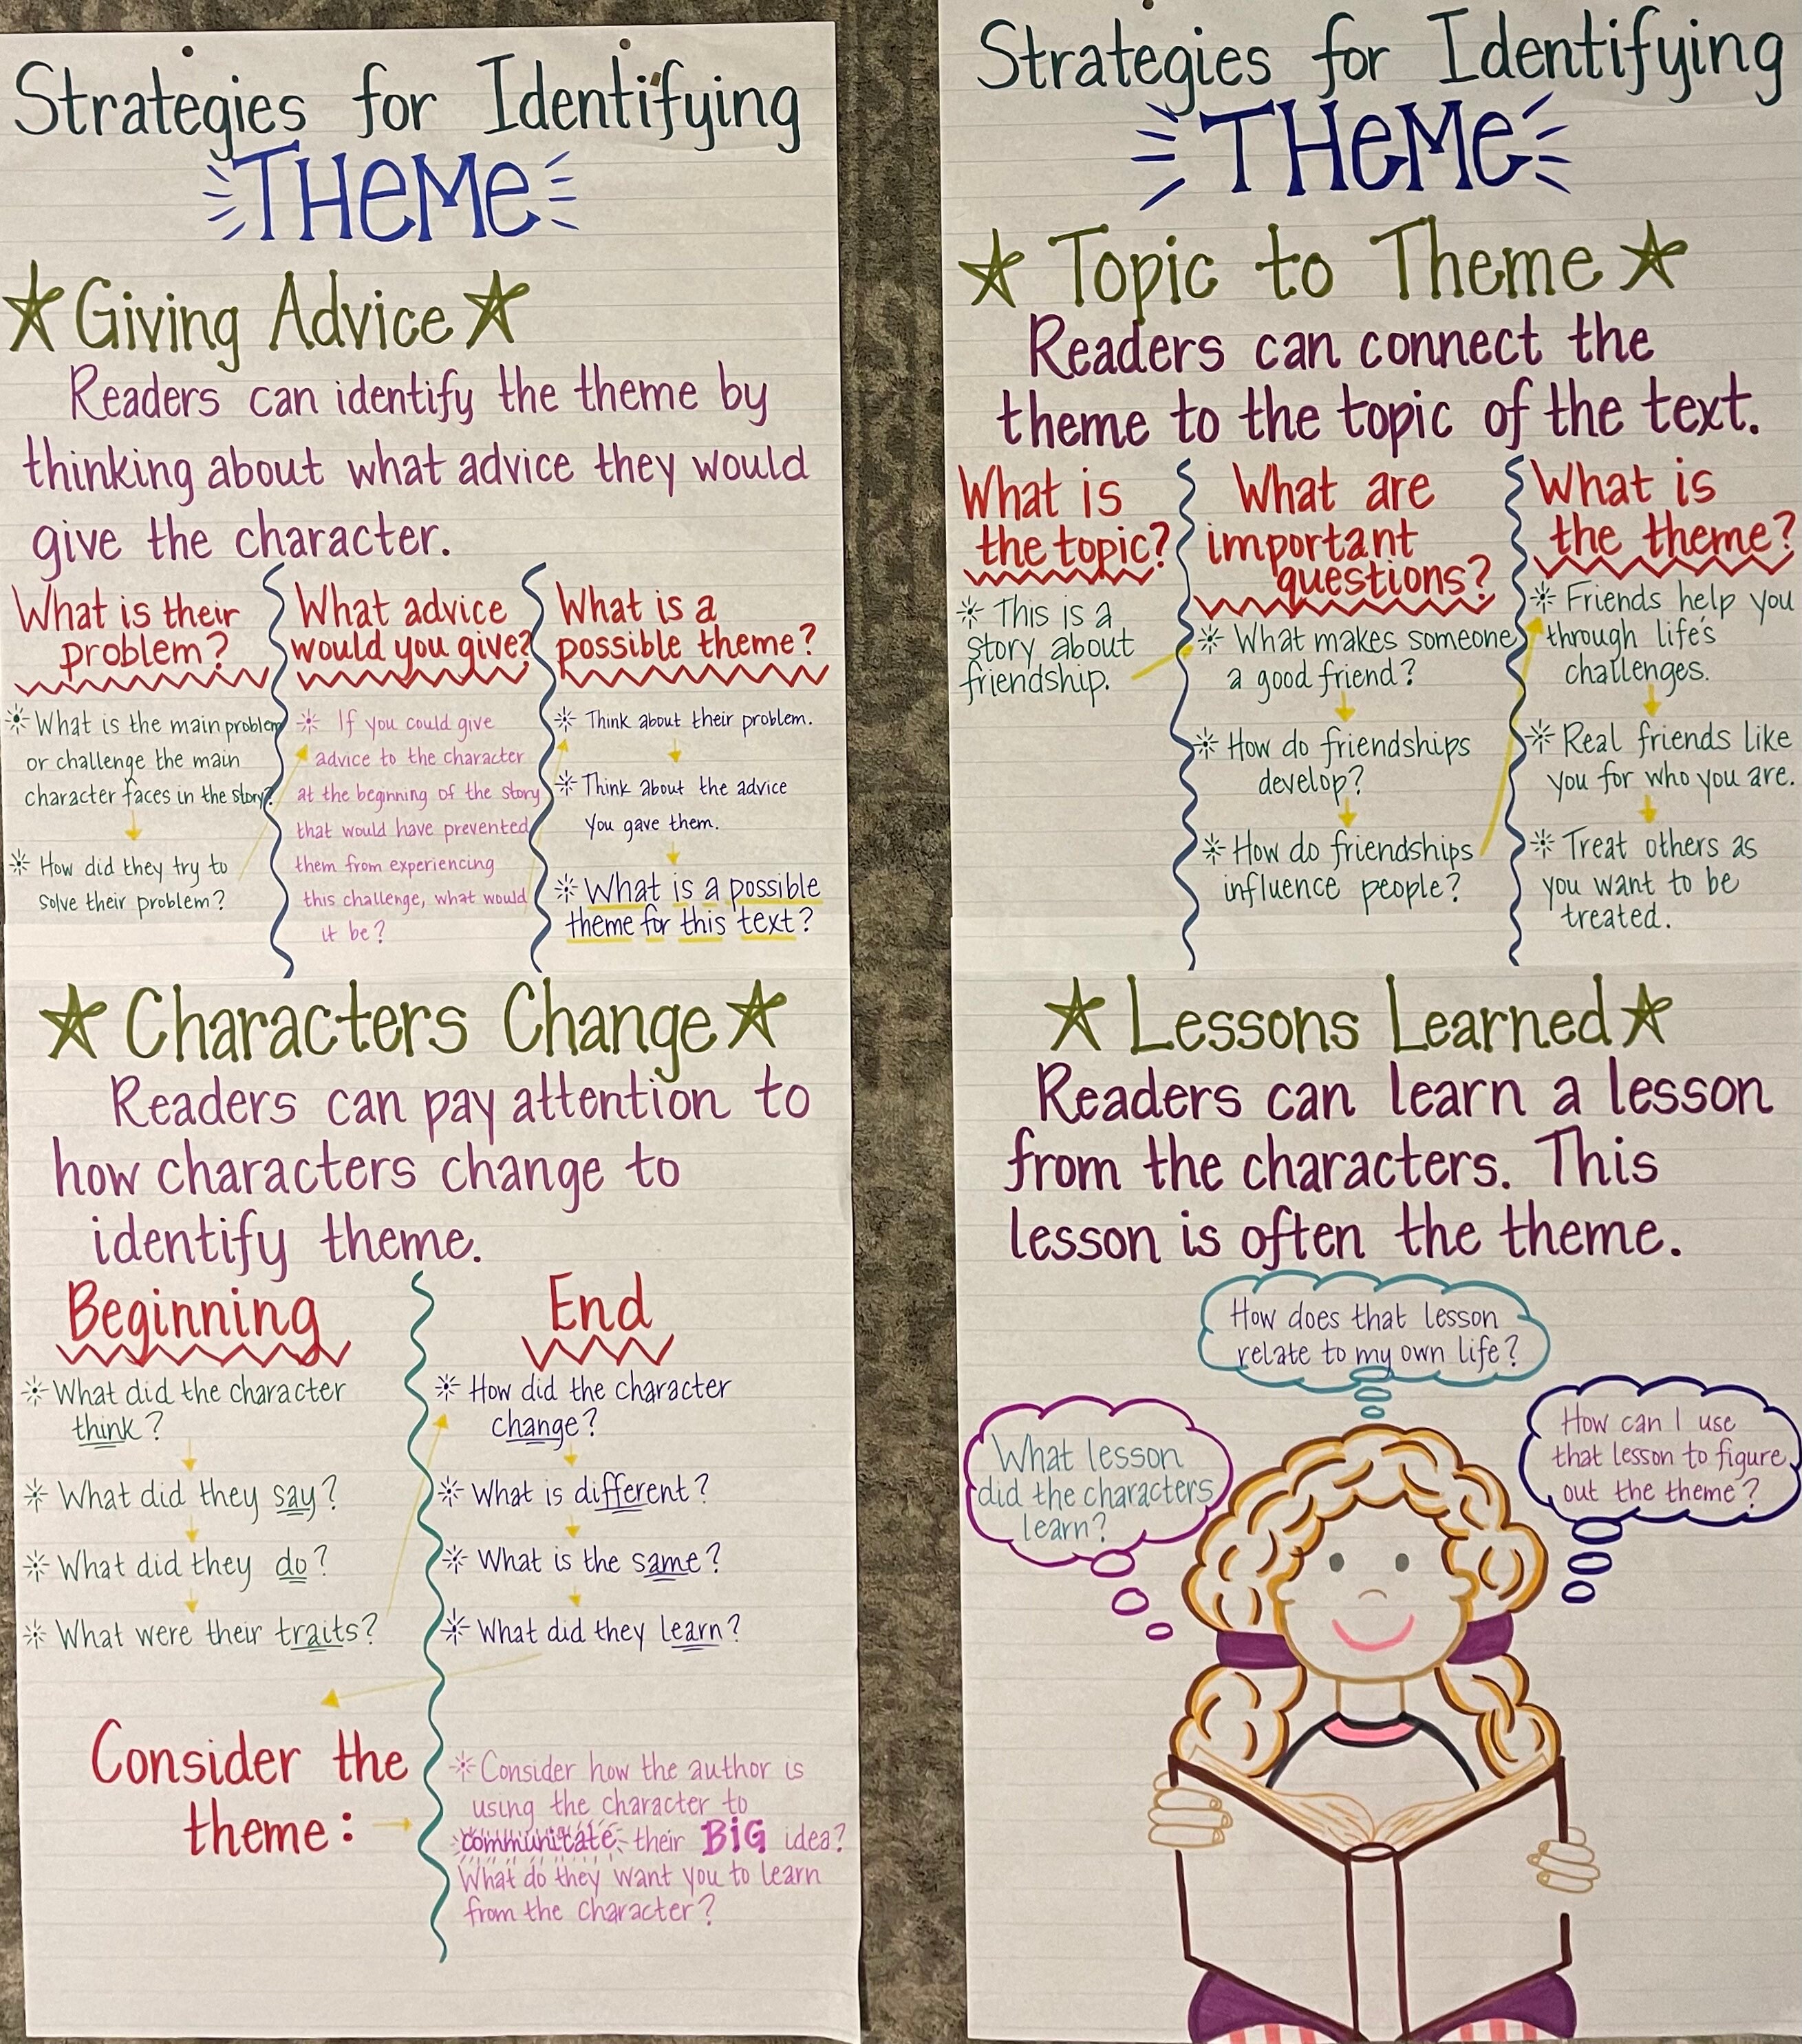 Strategies for Identifying
THeMe
Giving Advice
Readers can identify the theme by
thinking about what advice they would
give the character.
What is their
problem?
What is the main problem
or challenge the main
character faces in the story?
How did they try to
solve their problem?
What advice
would you give?
If you could give
advice to the character
at the beginning of the story
that would have prevented
them from experiencing
this challenge, what would
it be?
What is a
possible theme?
Think about their problem.
Think about the advice
you gave them.
What is a possible
theme for this text?
Characters Change
Readers can pay attention to
how characters change to
identify theme.
Beginning
What did the character
think?
What did they say?
What did they do?
What were their traits?
End
How did the character
change?
What is different?
What is the same?
What did they learn?
Consider the
theme:
Consider how the author is
using the character to
communicate their BiG idea?
What do they want you to learn
from the character?
Strategies for Identifying
THeMe
Topic to Theme
Readers can connect the
theme to the topic of the text.
What is
the topic?
This is a
story about
friendship.
What are
important
questions?
What makes someone
a good friend?
How do friendships
develop?
How do friendships
influence people?
What is
the theme?
Friends help you
through life's
challenges.
Real friends like
you for who you are.
Treat others as
you want to be
treated.
Lessons Learned
Readers can learn a lesson
from the characters. This
lesson is often the theme.
What lesson
did the characters
learn?
How does that lesson
relate to my own life?
How can I use
that lesson to figure
out the theme?